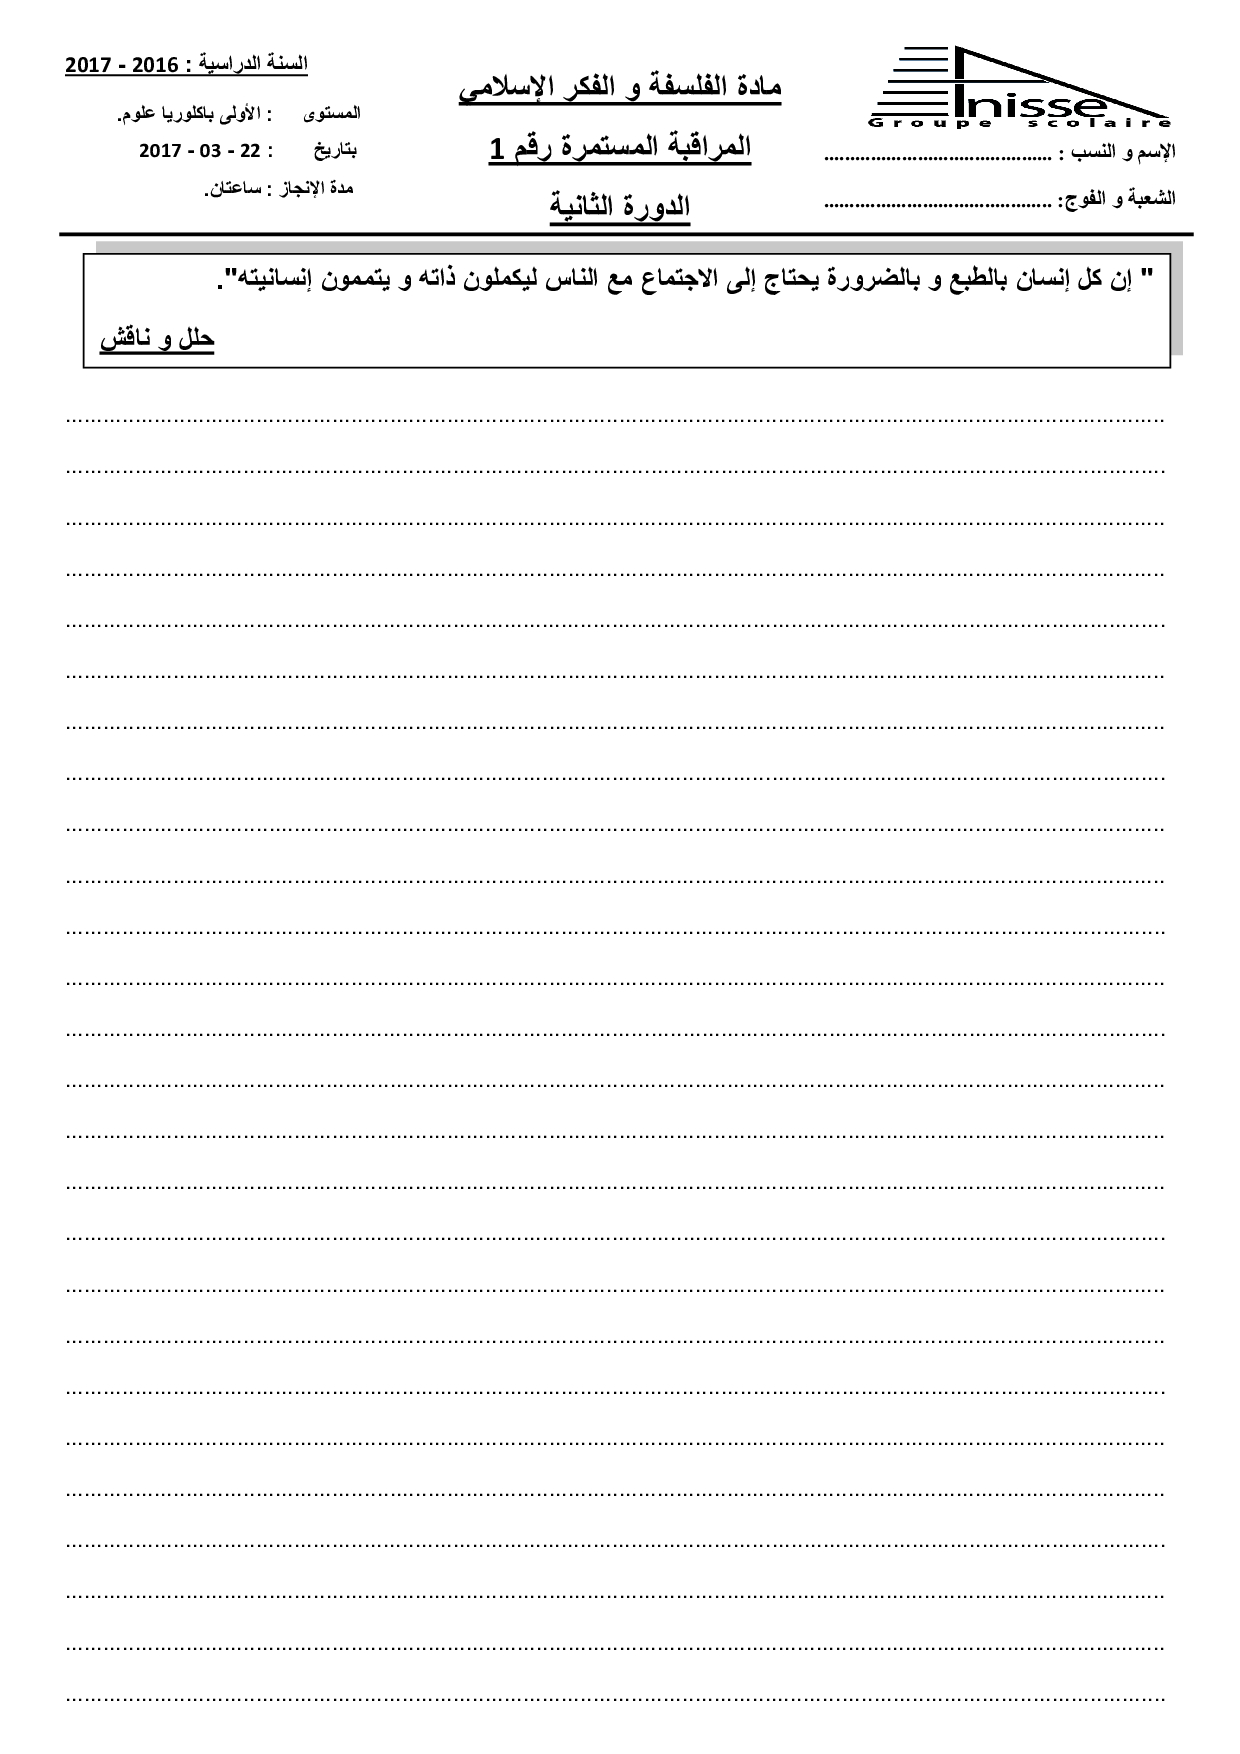 Inisse
Groupe scolaire
الإسم و النسب : ............................................
الشعبة و الفوج: ............................................
مادة الفلسفة و الفكر الإسلامي
المراقبة المستمرة رقم 1
الدورة الثانية
السنة الدراسية : 2016 - 2017
المستوى : الأولى باكلوريا علوم.
بتاريخ : 22 - 03 - 2017
مدة الإنجاز : ساعتان.
" إن كل إنسان بالطبع و بالضرورة يحتاج إلى الاجتماع مع الناس ليكملون ذاته و يتممون إنسانيته".
حلل و ناقش